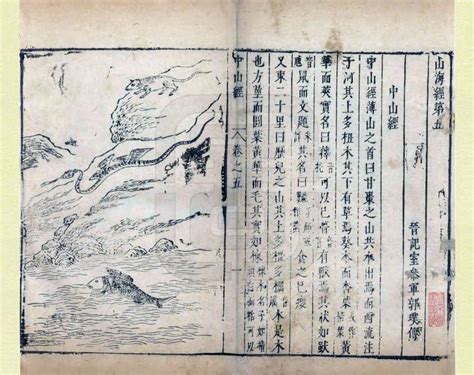 山海經第五
晉記室參軍郭璞傳
中山經
中山經薄山之首曰甘棗之山共水出焉而西流注
于河其上多杻木其下有草焉葵本而杏葉 黃
華而莢實名曰籜 可以已 有獸焉其狀如
鼠而文題 其名曰 食之已癭
又東二十里曰歷兒之山其上多橿多 木 是木
也方莖而圓葉黃華而毛其實如
中山經
卷之五
一